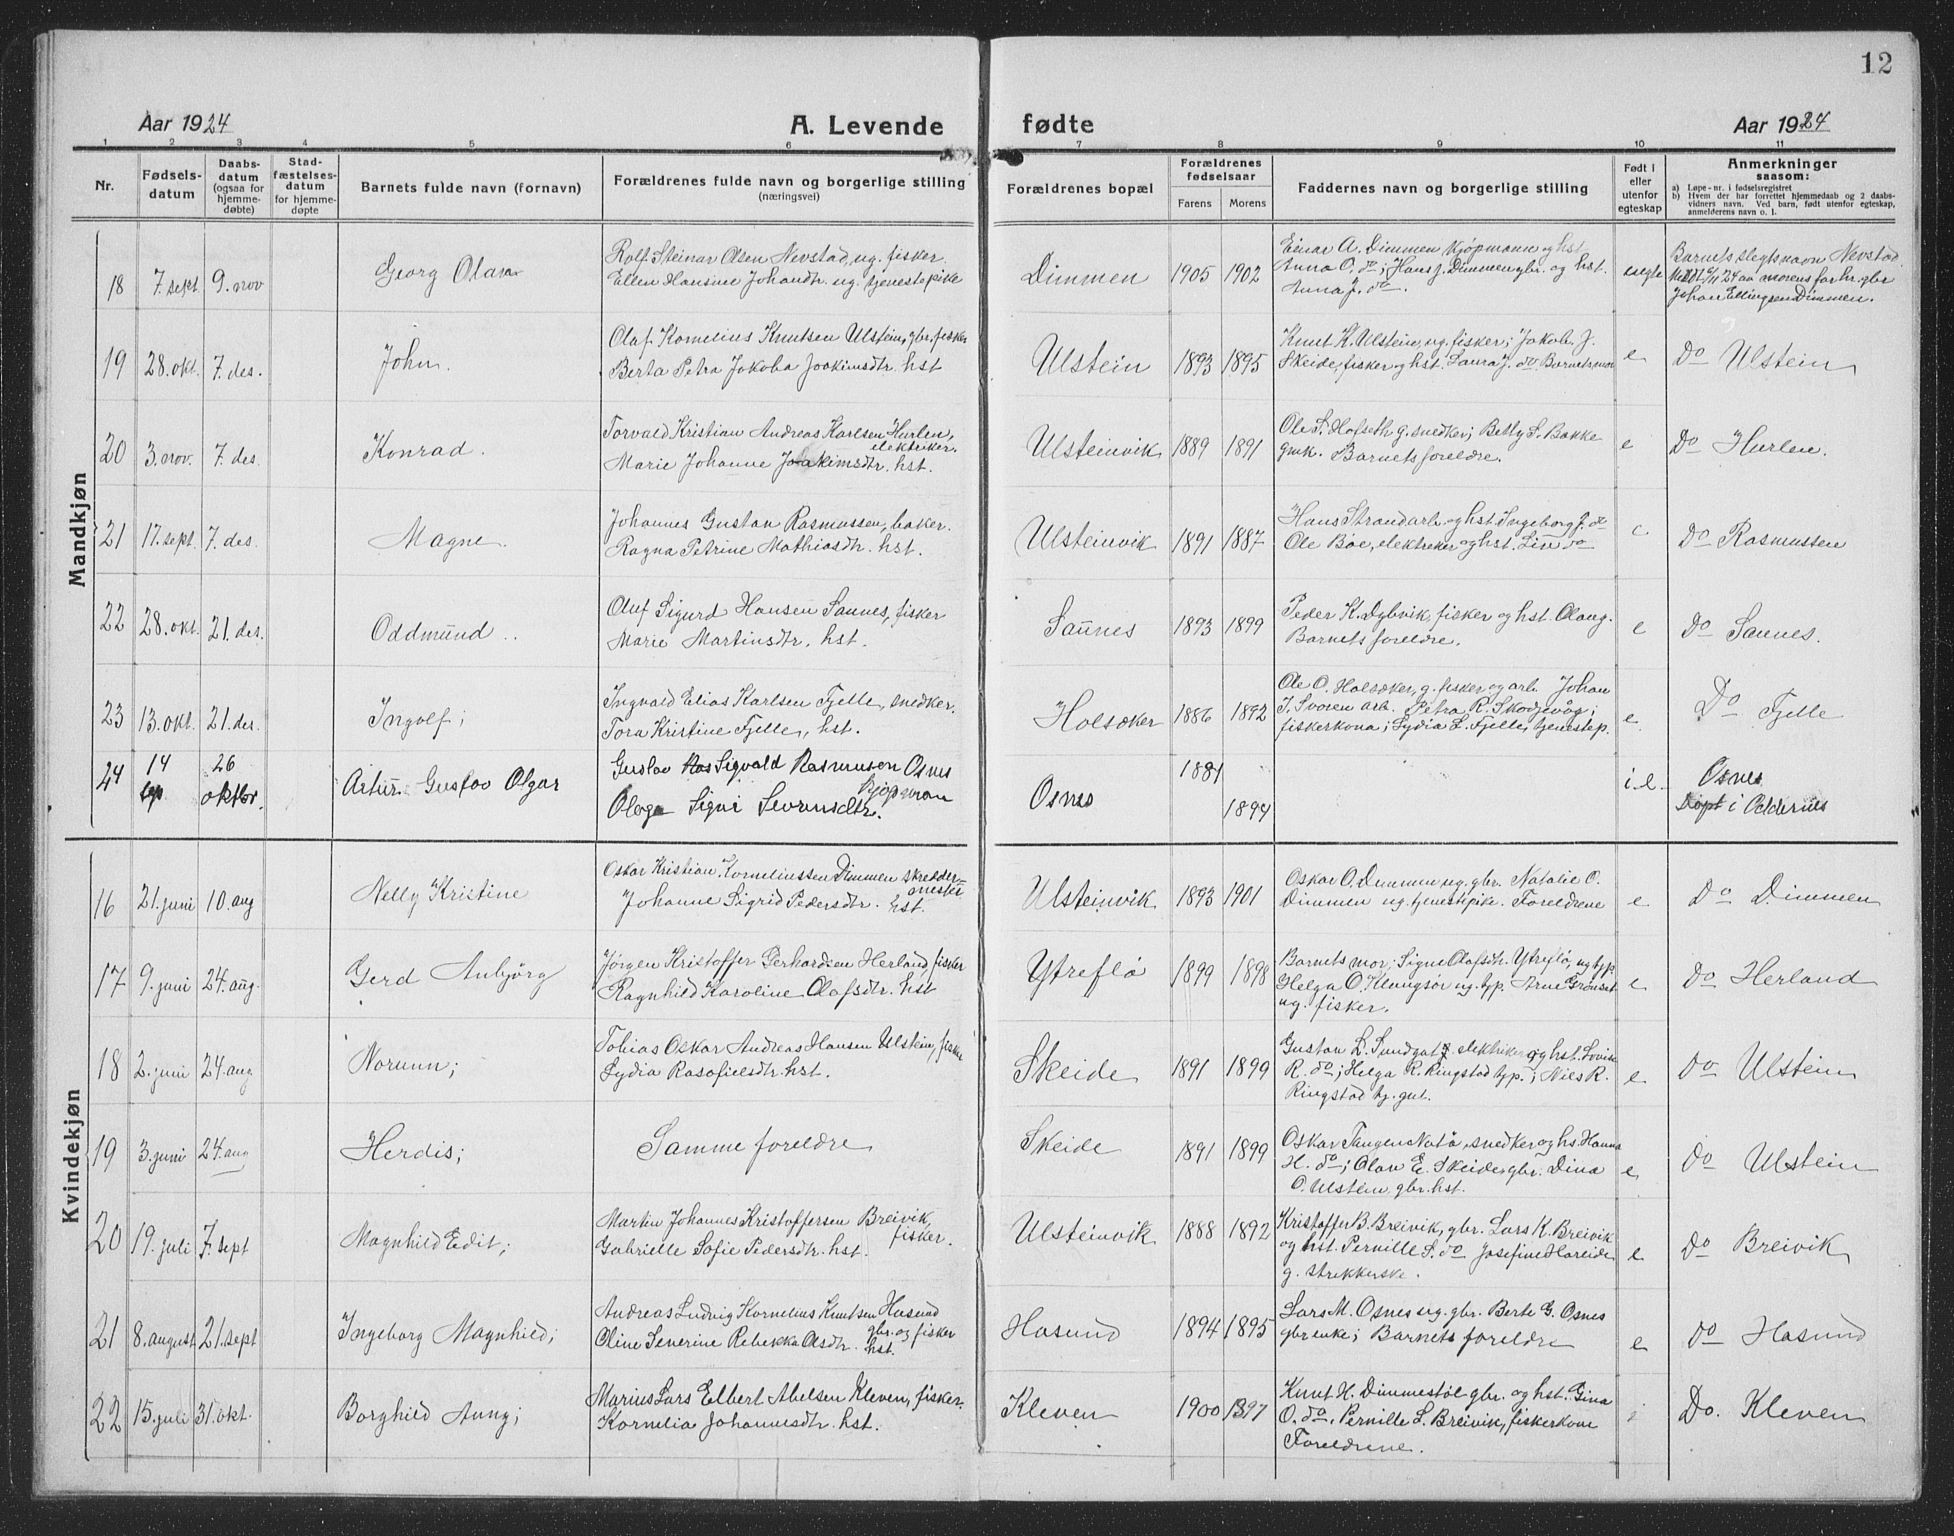 12
Aar 1924 A. Levende fødte Aar 1924
1 2 3 4 5 6 7 8 9 10 11
Nr. | Fødsels-datum | Daabs-datum (ogsaa for hjemme-døbte) | Stad-fæstelses-datum for hjemme-døpte | Barnets fulde navn (fornavn) | Forældrenes fulde navn og borgerlige stilling (næringsvei) | Forældrenes bopæl | Forældrenes fødselsaar Farens Morens | Faddernes navn og borgerlige stilling | Født i eller utenfor egteskap | Anmerkninger saasom:
a) Løpe-nr. i fødselsregistret
b) Hvem der har forrettet hjemmedaab og 2 daabs-vidners navn. Ved barn, født utenfor egteskap, anmelderens navn o. l.
Mandkjøn
18 7. sept. 9. nov Georg Olav
Rolf Steinar Olsen Nevstad, ug. fisker.
Ellen Hansine Johandtr. ug. tjenestepike
Dimmen 1905 1902
Einar A. Dimmen kjøpmann og hst.
Anna O. do; Hans J. Dimmen gbr. og hst.
Anna J. do.
uegte
Barnets slegtsnavn Nevstad
Meldt 6/11 24 av morens far hr. gbr
Johan Ellingsen Dimmen.
19 28. okt. 7. des. John.
Olaf Kornelius Knutsen Ulstein, gbr. fisker
Berta Petra Jokoba Joakimsdtr. hst
Ulstein 1893 1895
Knut K. Ulstein, ug. fisker; Jakob J.
Skeide, fisker og hst. Laura J. do. Barnets mor
e
Do Ulstein
20 3. nov. 7. des Konrad.
Torvald Kristian Andreas Karlsen Hurlen,
elektriker.
Marie Johanne Joakimsdtr. hst.
Ulsteinvik 1889 1891
Ole S. Hofseth g. snedker; Betty S. Bakke
gmk. Barnets foreldre.
e
Do Hurlen.
21 17. sept 7. des. Magne.
Johannes Gustav Rasmussen, baker.
Ragna Petrine Mathiasdtr. hst.
Ulsteinvik 1891 1887
Hans Strand arb. og hst. Ingeborg J. do
Ole Bøe, elektreker og hst. Lin do
e
Do Rasmussen
22 28. okt. 21. des. Oddmund..
Oluf Sigurd Hansen Saunes, fisker
Marie Martinsdtr. hst.
Saunes 1893 1899
Peder K. Dybvik, fisker og hst. Olaug.
Barnets foreldre.
e
Do Saunes.
23 13. okt. 21. des. Ingolf;
Ingvald Elias Karlsen Fjelle, snedker.
Tora Kristine Fjelle, hst.
Holsæker 1886 1892
Ole O. Holsæker, g. fisker og arb. Johan
I. Svoren arb. Petra R. Skodjevåg;
fiskerkona; Lydia L. Fjelle, tjenestep.
e.
Do Fjelle
24 14 sep 26 oktbr. Artur Gustav Olgar
Gustav Sigvald Rasmusen Osnes
kjøpman
Olaga Signi Severinsdtr.
Osnes 1881 1894
i.e.
Osnes
Døpt i Oddernes
Kvindekjøn
16 21. juni 10. aug Nelly Kristine
Oskar Kristian Korneliussen Dimmen skredder-
mester
Johanne Sigrid Pedersdtr. hst.
Ulsteinvik 1893 1901
Oskar O. Dimmen ug. gbr. Natalie O.
Dimmen ug. tjenestpike. Foreldrene
e
Do Dimmen
17 9. juni 24. aug. Gerd Anbjørg
Jørgen Kristoffer Gerhardsen Herland, fisker
Ragnhild Karoline Olafsdtr. hst
Ytreflø 1899 1898
Barnets mor; Signe Olafsdtr. Ytreflø, ug typ.
Helga O. Klungsør ug. typ. Arne Grønset
ug. fisker.
e
Do Herland
18 2. juni 24. aug Norunn;
Tobias Oskar Andreas Hansen Ulstein, fisker
Lydia Rasofielsdtr. hst.
Skeide 1891 1899
Gustav L. Sundgot elektriker og hst. Lovise
R. do; Helga R. Ringstad typ.; Nils R.
Ringstad tj. gut.
e
Do Ulstein
19 3. juni 24. aug Herdis;
Samme foreldre
Skeide 1891 1899
Oskar Tangen Natø, snedker og hs. Hanna
H. do; Olav E. Skeide, gbr. Dina
O. Ulstein, gbr. hst.
e
Do Ulstein
20 19. juli 7. sept Magnhild Edit;
Martin Johannes Kristoffersen Breivik,
fisker.
Gabrielle Sofie Pedersdtr. hst.
Ulsteinvik 1888 1892
Kristoffer B. Breivik, gbr. Lars K. Breivik
og hst. Pernille S. do Josefine Hareide
g. strekkerske.
e
Do Breivik
21 8. august 21. sept Ingeborg Magnhild;
Andreas Ludvig Kornelius Knutsen Hasund
gbr. og fisker
Oline Severine Rebekka Olsdtr. hst.
Hasund 1894 1895
Lars M. Osnes ug. gbr. Berte G. Osnes
gbr enke; Barnets foreldre
e
Do Hasund
22 15. juli 31. okt. Borghild Aung;
Marius Lars Elbert Abelsen Kleven, fisker.
Kornelia Johannesdtr. hst.
Kleven 1900 1897
Knut H. Dimmestøl gbr. og hst. Gina
O. do. Pernille L. Breivik, fiskerkone
Foreldrene.
Do. Kleven